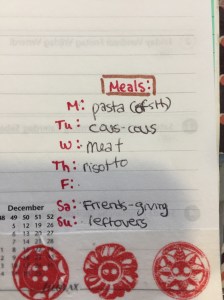 Meals:
M: pasta
Tu: cous-cous
W: meat
Th: risotto
F:
Sa: Friends-giving
Su: leftovers
December
48 49 50 51 52
5 12 19 26
6 13 20 27
7 14 21 28
1 8